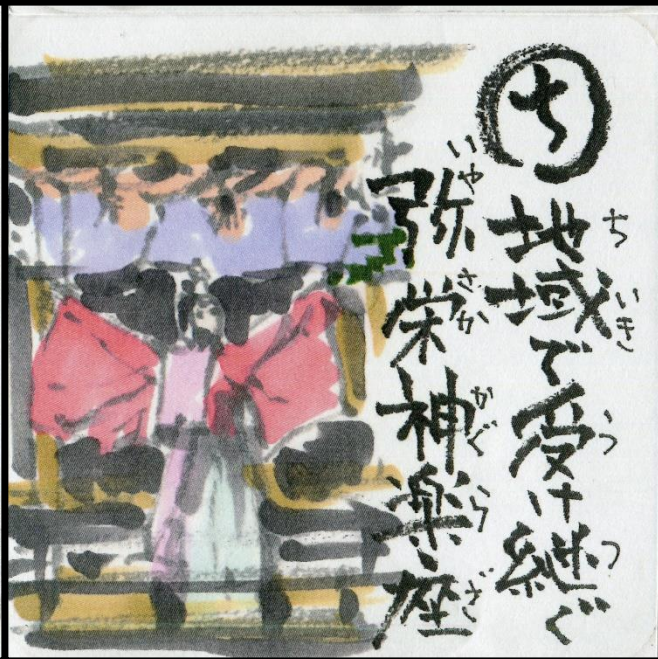 ち
地域で受け継ぐ
ちいきうつ
弥栄神楽座
いやさかかぐらざ